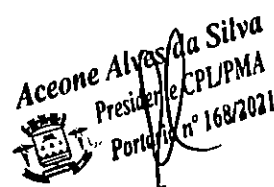 Aceone Alves da Silva
Presidente CPL/PMA
Portaria nº 168/2021